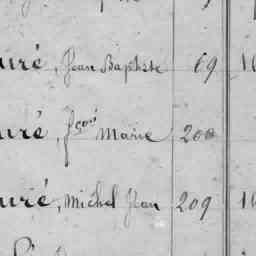 uré, Jean Baptiste 69 1
uré, fçois Marie 200
uré, Michel Jean 209 1